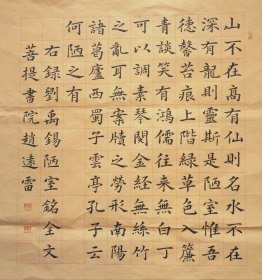 山不在高有仙則名水不在
深有龍則靈斯是陋室惟吾
德馨苔痕上階綠草色入簾
青談笑有鴻儒往來無白丁
可以調素琴閱金經無絲竹
之亂耳無案牘之勞形南陽
諸葛廬西蜀子雲亭孔子云
何陋之有
右録劉禹錫陋室銘全文
菩提書院趙遠雷